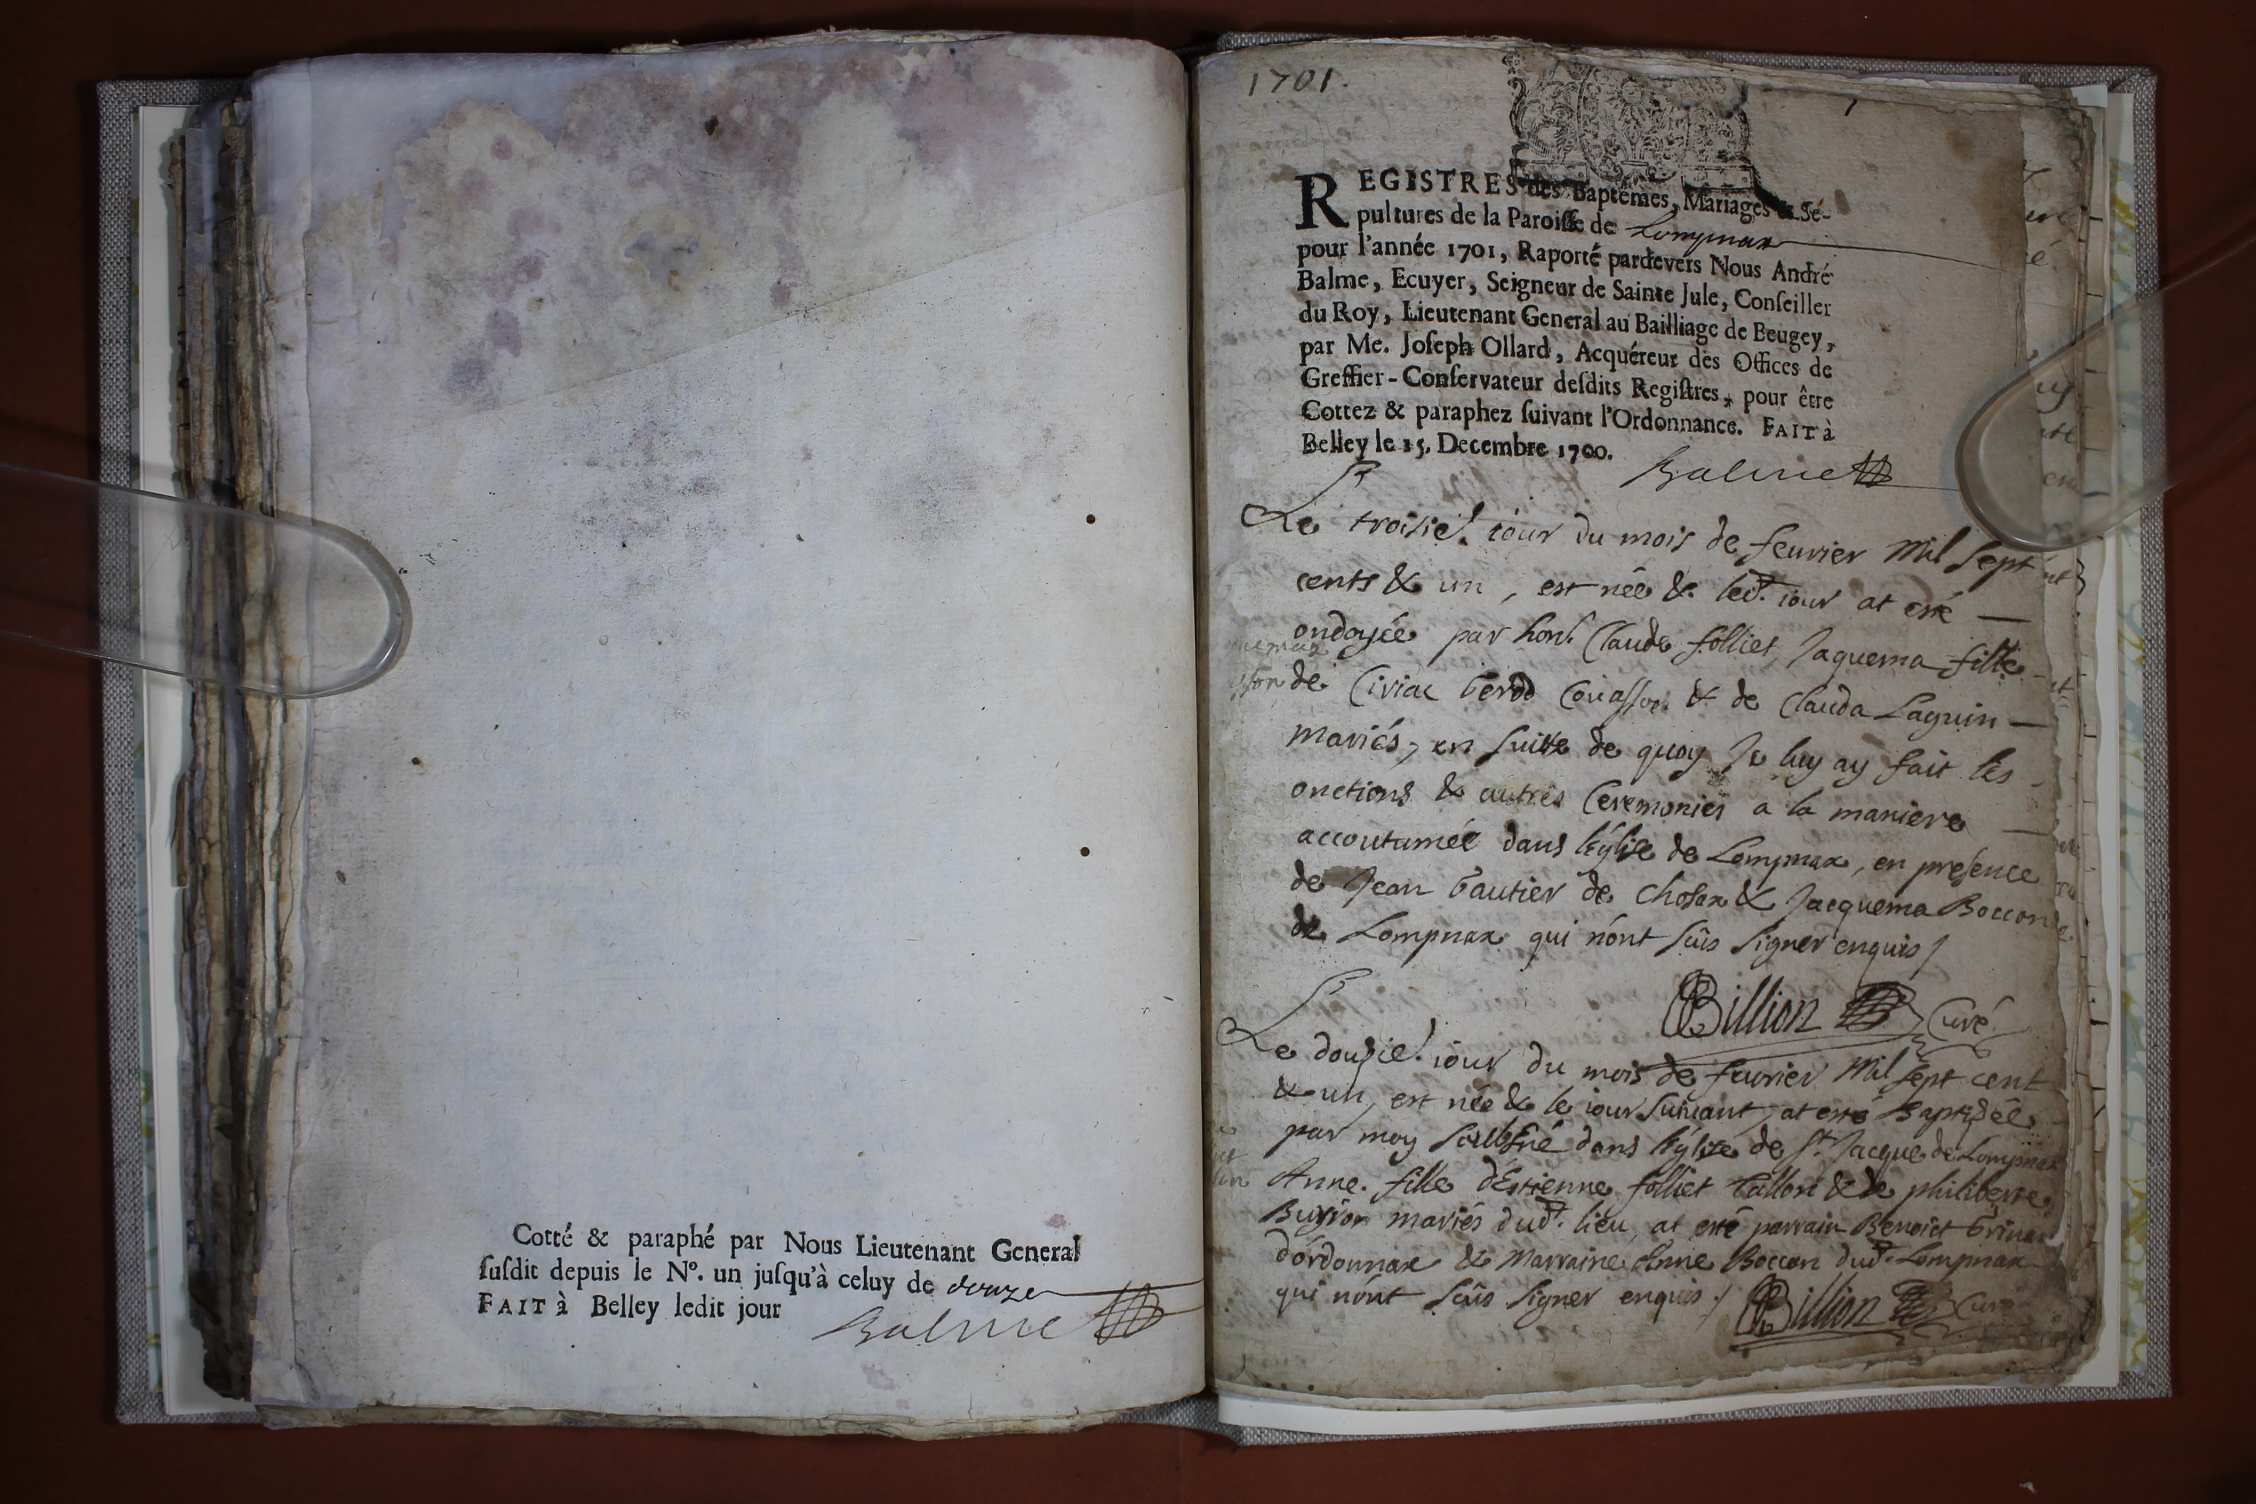 Cotté & paraphé par Nous Lieutenant General
ſuſdit depuis le N°. un juſqu'à celuy de douze
FAIT à Belley ledit jour
Balme
1701.
REGISTRES des Baptêmes, Mariages & Sé-
pultures de la Paroiſſe de Lompnax
pour l'année 1701, Raporté pardevers Nous André
Balme, Ecuyer, Seigneur de Sainte Jule, Conſeiller
du Roy, Lieutenant General au Bailliage de Beugey,
par Me. Joſeph Ollard, Acquéreur des Offices de
Greffier-Conſervateur deſdits Regiſtres, pour être
Cottez & paraphez ſuivant l'Ordonnance. FAIT à
Belley le 15. Decembre 1700.
Balme
Le troisie. iour du mois de feurier mil sept
cents & un, est née & led. iour at esté
ondoyée par hon. Claude folliet, Jaquema fille
de Ciriac & de Clauda Laguin
mariés, en suitte de quoy Je luy ay fait les
onctions & autres Ceremonies a la maniere
accoutumée dans l'Église de Lompnax, en presence
de Jean Gautier de Chosax & Jacquema Boccon
de Lompnax qui n'ont sçûs signer enquis /
Billion Curé
Le douzie. iour du mois de feurier mil sept cent
& un, est née & le iour suiuant, at esté Baptizée
par moy soubsné dans l'Église de St. Jacque de Lompnax
Anne. fille d'Estienne folliet Tallon & de philiberte
mariés dud. lieu, at esté parrain Benoict
d'ordonnax & Marraine Anne Boccon dud. Lompnax
qui n'ont sçûs signer enquis. /
Billion Curé